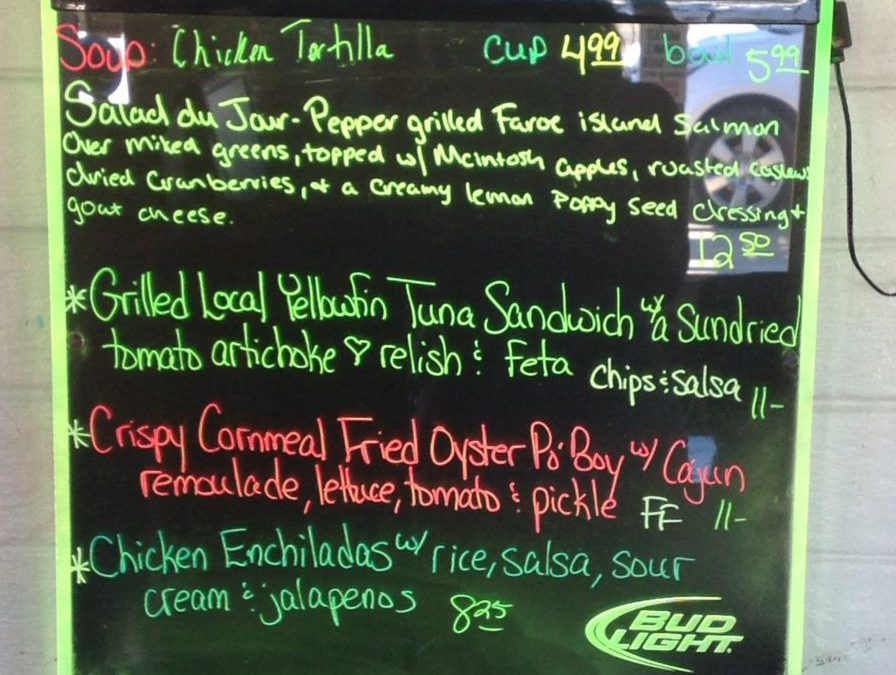 Soup: Chicken Tortilla cup 4.99 bowl 5.99
Salad du Jour - Pepper grilled Faroe island Salmon
Over mixed greens, topped w/ McIntosh apples, roasted cashews
dried Cranberries, + a creamy lemon Poppy seed dressing +
goat cheese. 12.50
*Grilled Local Yellowfin Tuna Sandwich w/ a Sundried
tomato artichoke ♡ relish & Feta chips & salsa 11-
*Crispy Cornmeal Fried Oyster Po' Boy w/ Cajun
remoulade, lettuce, tomato & pickle FF 11-
*Chicken Enchiladas w/ rice, salsa, sour
cream & jalapenos 8.25
BUD
LIGHT